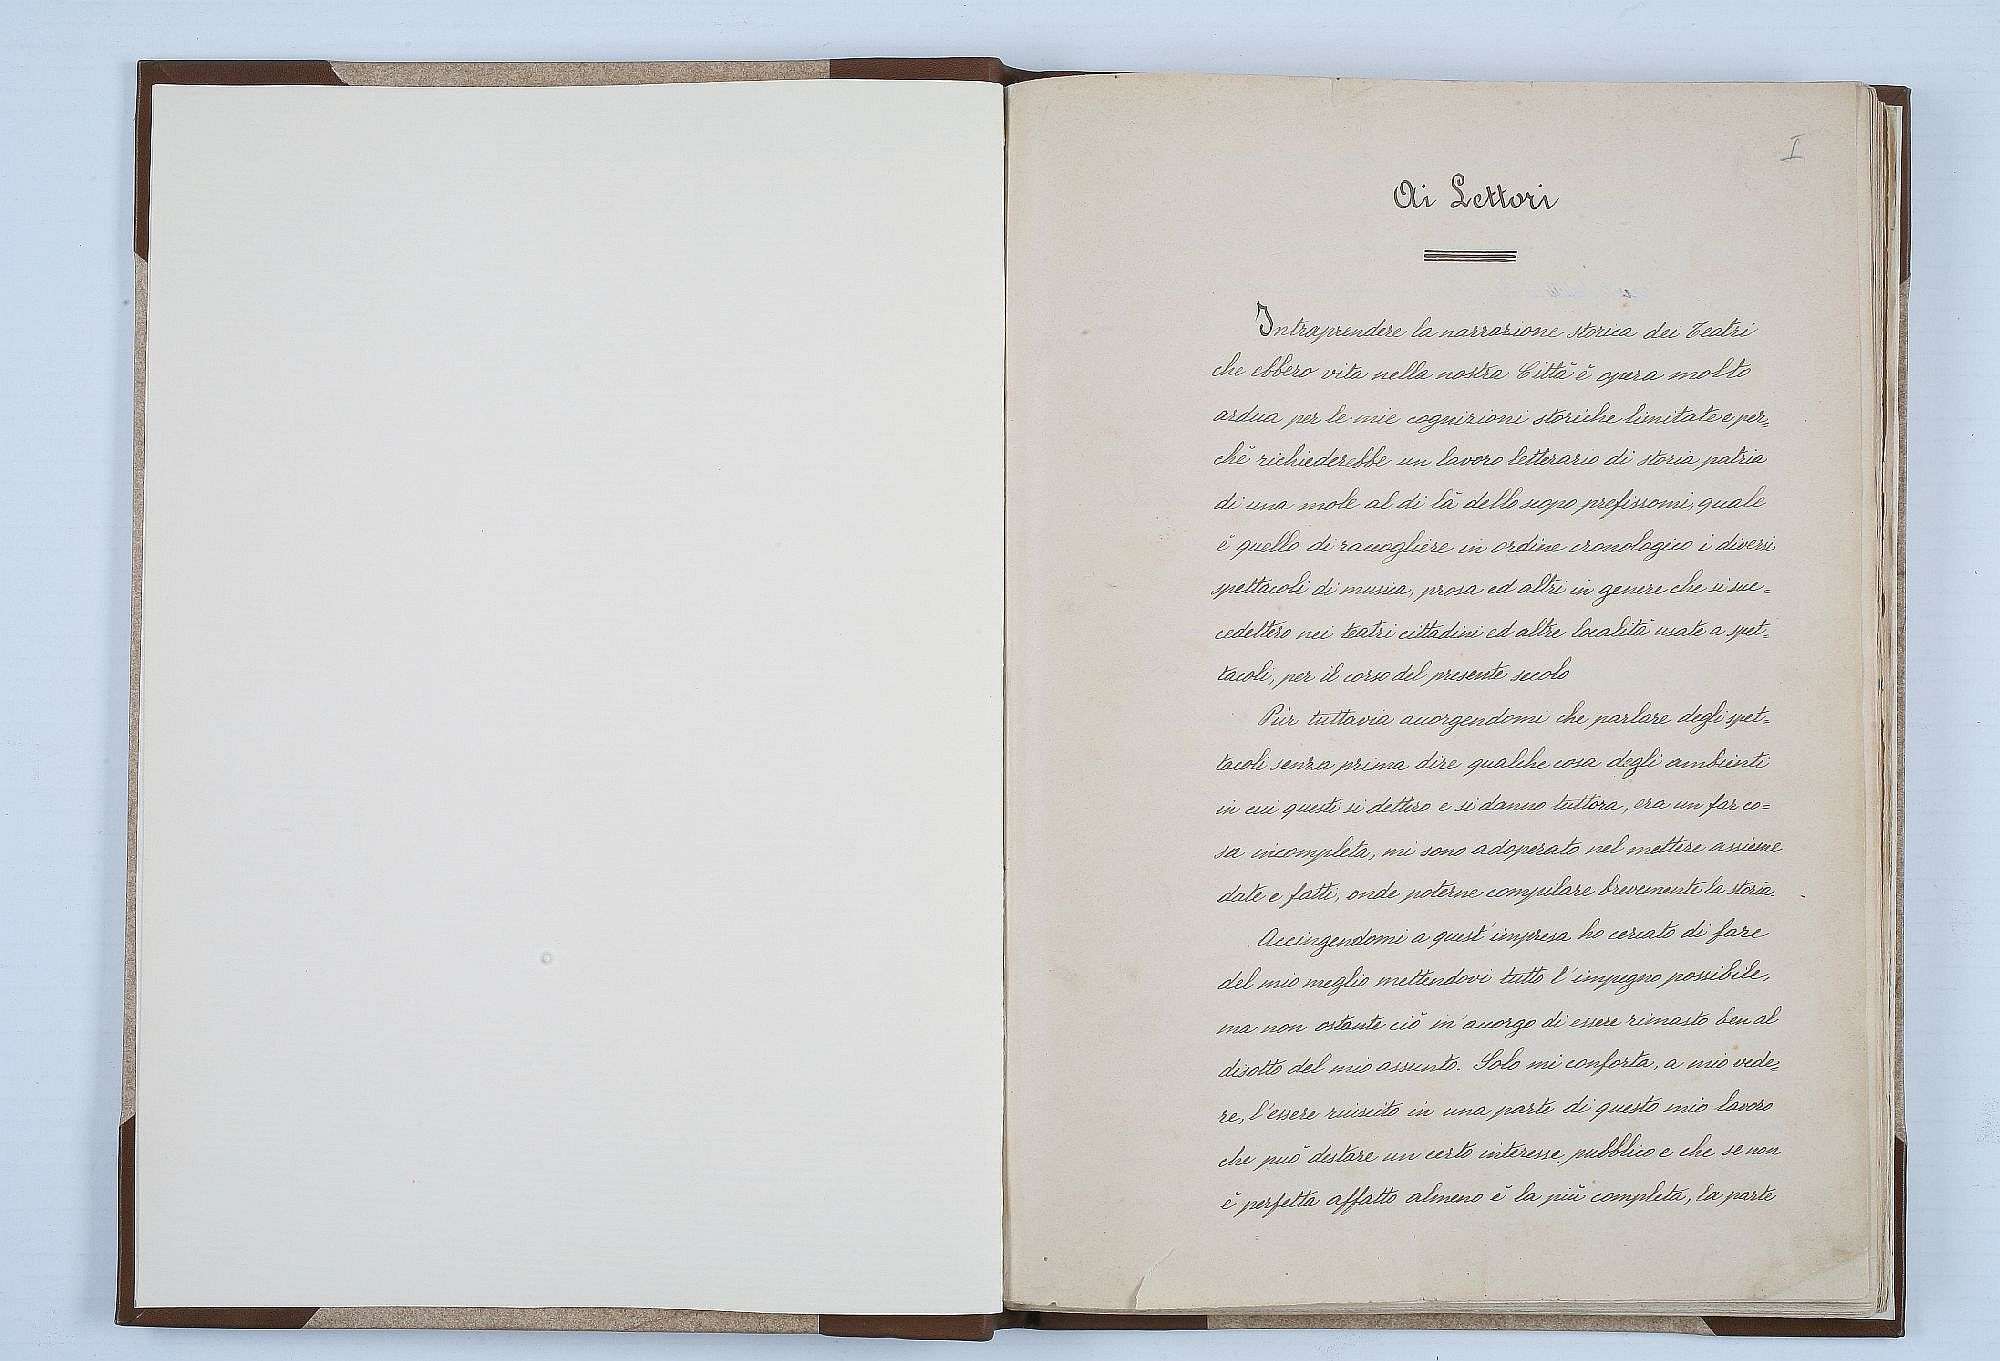 I
Ai Lettori
Intraprendere la narrazione storica dei Teatri
che ebbero vita nella nostra Città è opera molto
ardua per le mie cognizioni storiche limitate e per=
chè richiederebbe un lavoro letterario di storia patria
di una mole al di là dello scopo prefissomi, quale
è quello di raccogliere in ordine cronologico i diversi
spettacoli di musica, prosa ed altri in genere che si suc=
cedettero nei teatri cittadini ed altre località usate a spet=
tacoli, per il corso del presente secolo
Pur tuttavia accorgendomi che parlare degli spet=
tacoli senza prima dire qualche cosa degli ambienti
in cui questi si dettero e si danno tuttora, era un far co=
sa incompleta, mi sono adoperato nel mettere assieme
date e fatti, onde poterne compilare brevemente la storia.
Accingendomi a quest'impresa ho cercato di fare
del mio meglio mettendovi tutto l'impegno possibile,
ma non ostante ciò m'accorgo di essere rimasto ben al
disotto del mio assunto. Solo mi conforta, a mio vede=
re, l'essere riuscito in una parte di questo mio lavoro
che può destare un certo interesse pubblico e che se non
è perfetta affatto almeno è la più completa, la parte